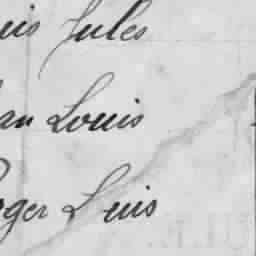 uis Jules
an Louis
oger Luis